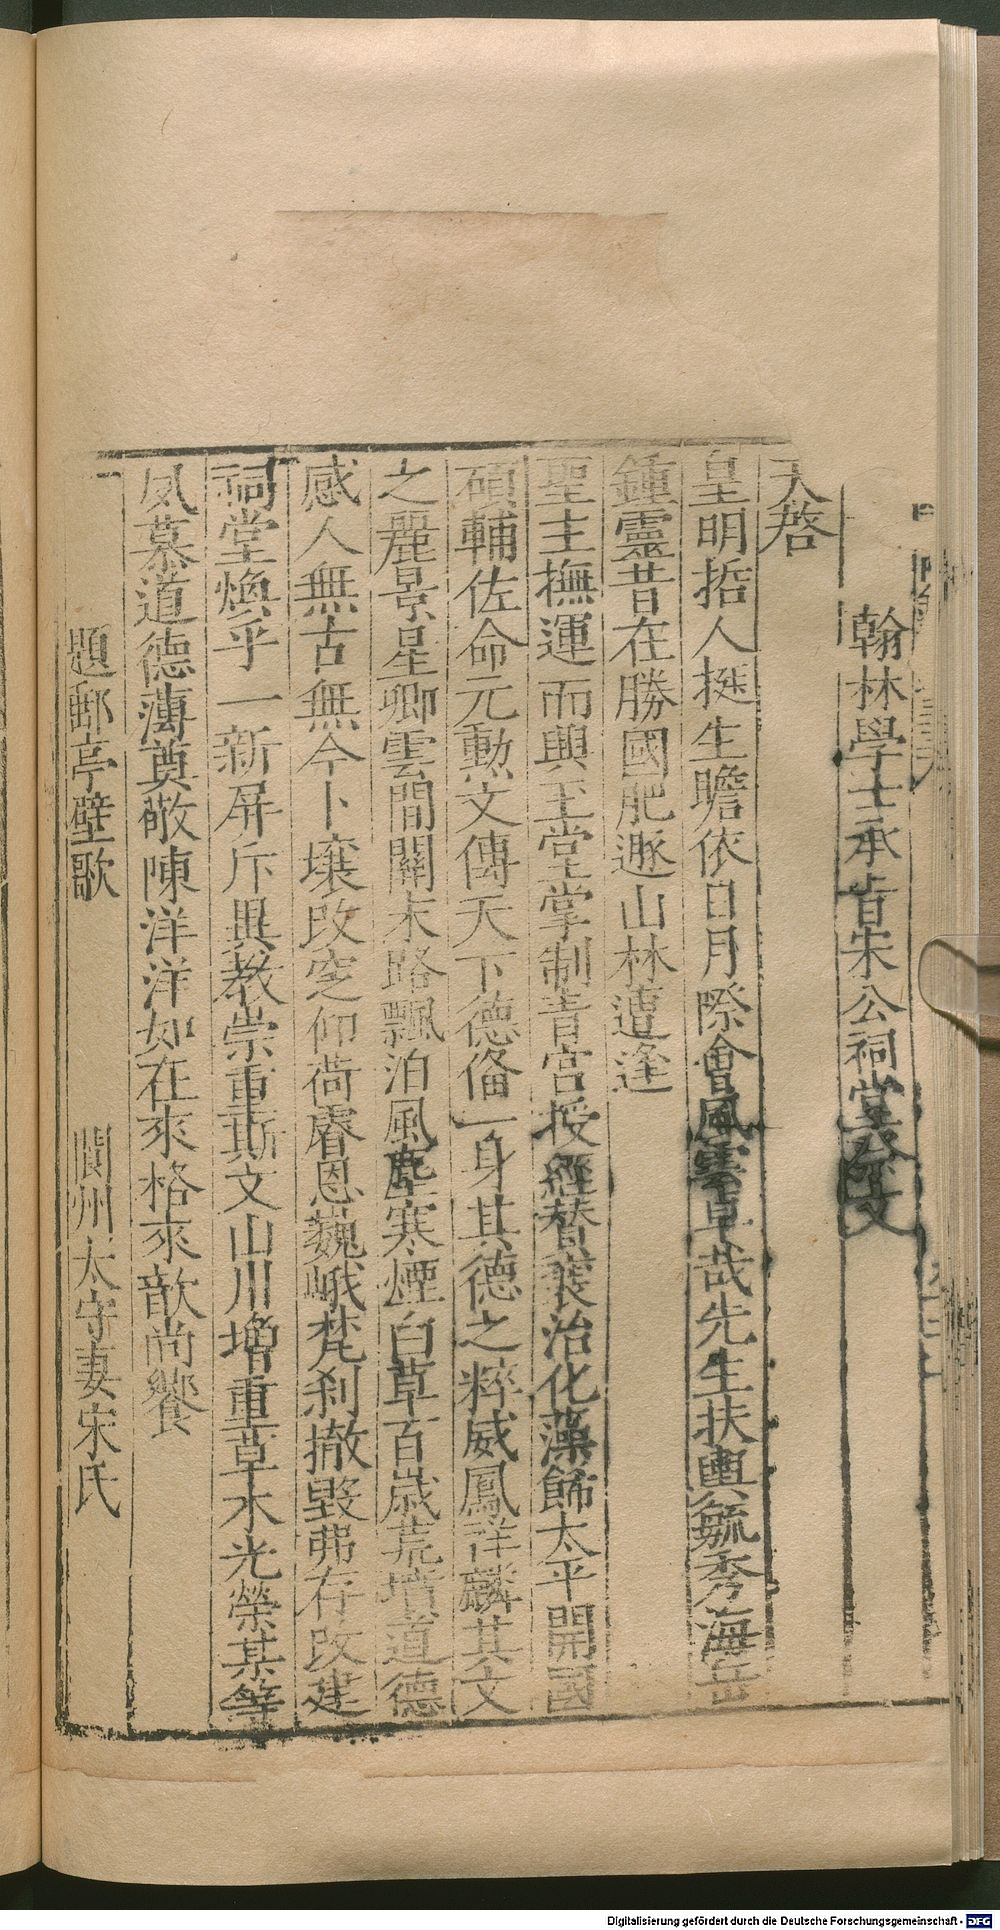 翰林學士承旨宋公祠堂祭文
天啓
皇明哲人挺生瞻依日月際會風雲卓哉先生扶輿毓秀海岳
鍾靈昔在勝國肥遯山林遭逢
聖主撫運而興玉堂掌制青宮授經替襄治化藻飾太平開國
碩輔佐命元勲文傳天下德備一身其德之粹威鳳祥麟其文
之麗景星卿雲間關末路飄泊風塵寒煙白草百歲荒墳道德
感人無古無今卜壤改窆仰荷睿恩巍峨梵刹撤毀弗存改建
祠堂煥乎一新屏斥異教崇重斯文山川增重草木光榮某等
夙慕道德薄奠敬陳洋洋如在來格來歆尚饗
題郵亭壁歌 閬州太守妻宋氏
Digitalisierung gefördert durch die Deutsche Forschungsgemeinschaft - DFG